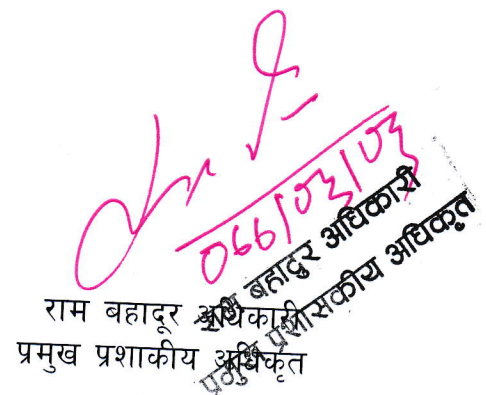 ०६६/०३/०३
राम बहादुर अधिकारी
प्रमुख प्रशासकीय अधिकृत
राम बहादूर अधिकारी
प्रमुख प्रशाकीय अधिकृत